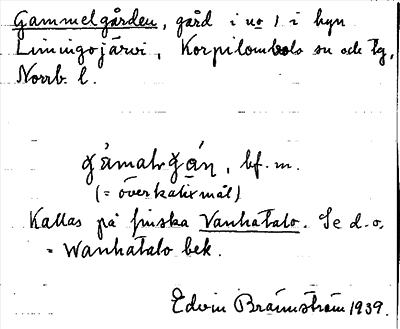 Gammelgården, gård i no 1 i byn
Liningojärvi, Korpilombolo sn och tg,
Norrb. l.
gàmalvgán, bf. m.
(= överkalixmål)
Kallas på finska Vanhatalo. Se d.o.
= Wanhatalo bek.
Edvin Brännström 1939.